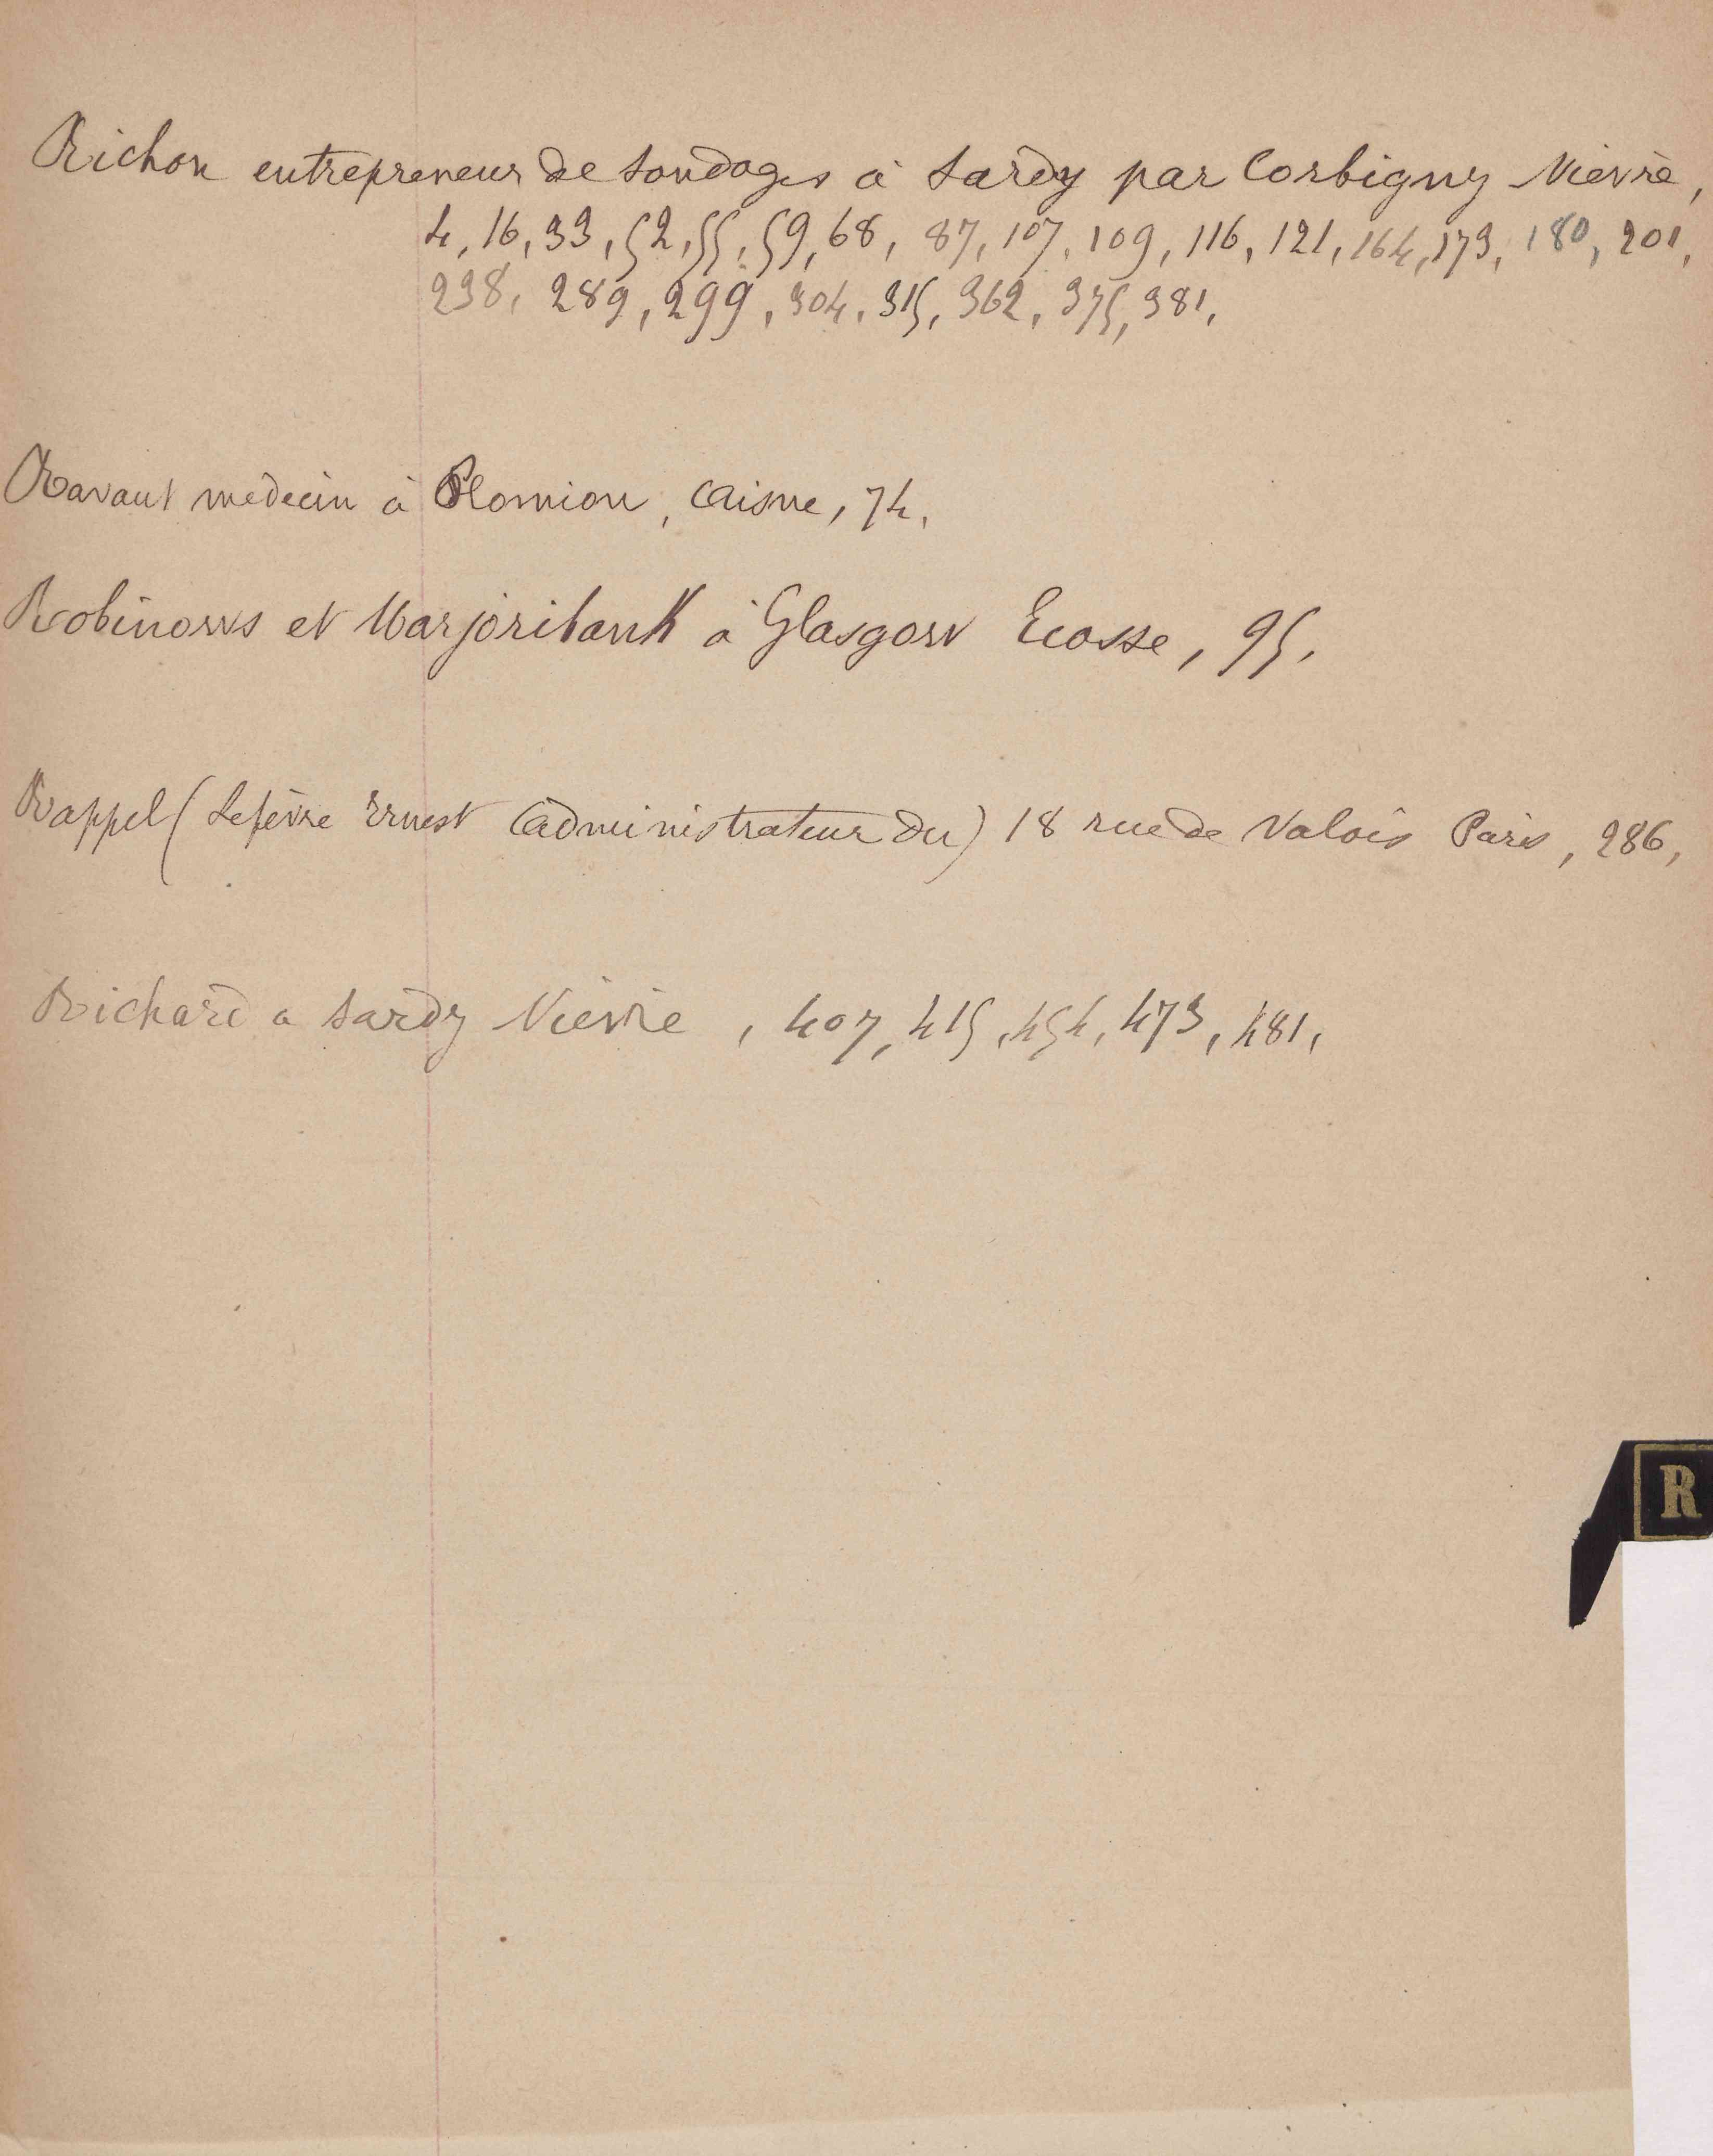 Richon entrepreneur de sondages à Sardy par Corbigny Nièvre,
4, 16, 33, 52, 55, 59, 68, 87, 107, 109, 116, 121, 164, 173, 180, 201,
238, 289, 299, 304, 315, 362, 375, 381,
Ravaut medecin à Plomion, Aisne, 74,
Robinows et Marjoribank à Glasgow Ecosse, 95,
Rappel (Lefèvre Ernest Administrateur du) 18 rue de Valois Paris, 286,
Richard a Sardy Nièvre, 407, 415, 454, 473, 481,
R